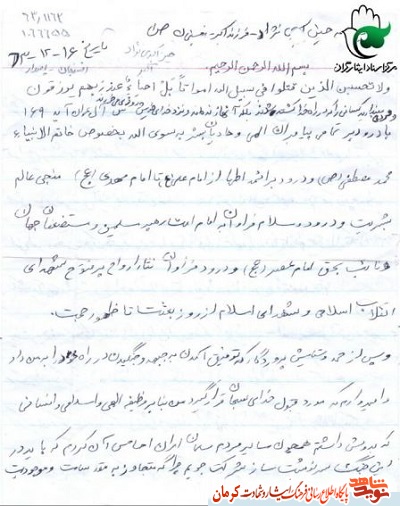 مرکز اسناد ایثارگران
۶۳،۱۱۶۲
تاریخ ۱۶-۱۲-
بسم الله الرحمن الرحیم
ولا تحسبن الذین قتلوا فی سبیل الله امواتا بل احیاء عند ربهم یرزقون
آل عمران آیه ۱۶۹
با درود بر تمامی پیامبران الهی و هادیان بشر بسوی الله بخصوص خاتم الانبیاء
محمد مصطفی (ص) و درود بر ائمه اطهار از امام علی (ع) تا امام مهدی (عج) منجی عالم
بشریت و درود و سلام فراوان به امام امت رهبر مسلمین و مستضعفان جهان
و نائب بحق امام عصر (عج) و درود فراوان نثار ارواح پرفتوح شهدای
انقلاب اسلامی و شهدای اسلام از روز بعثت تا ظهور حجت.
و پس از حمد و ستایش پروردگار که توفیق آمدن به جبهه و جنگیدن در راه خود را به من داد
و امیدوارم که مورد قبول خدای سبحان قرار گیرد من بنابر وظیفه الهی و اسلامی و انسانی
که بدوش داشتم همچون سایر مردم مسلمان ایران احساس آن کردم که باید در
این جنگ سرنوشت ساز شرکت جویم چرا که متجاوز به مقدسات و موجودیت
نوید شاهد
پایگاه اطلاع رسانی فرهنگ ایثار و شهادت کرمان